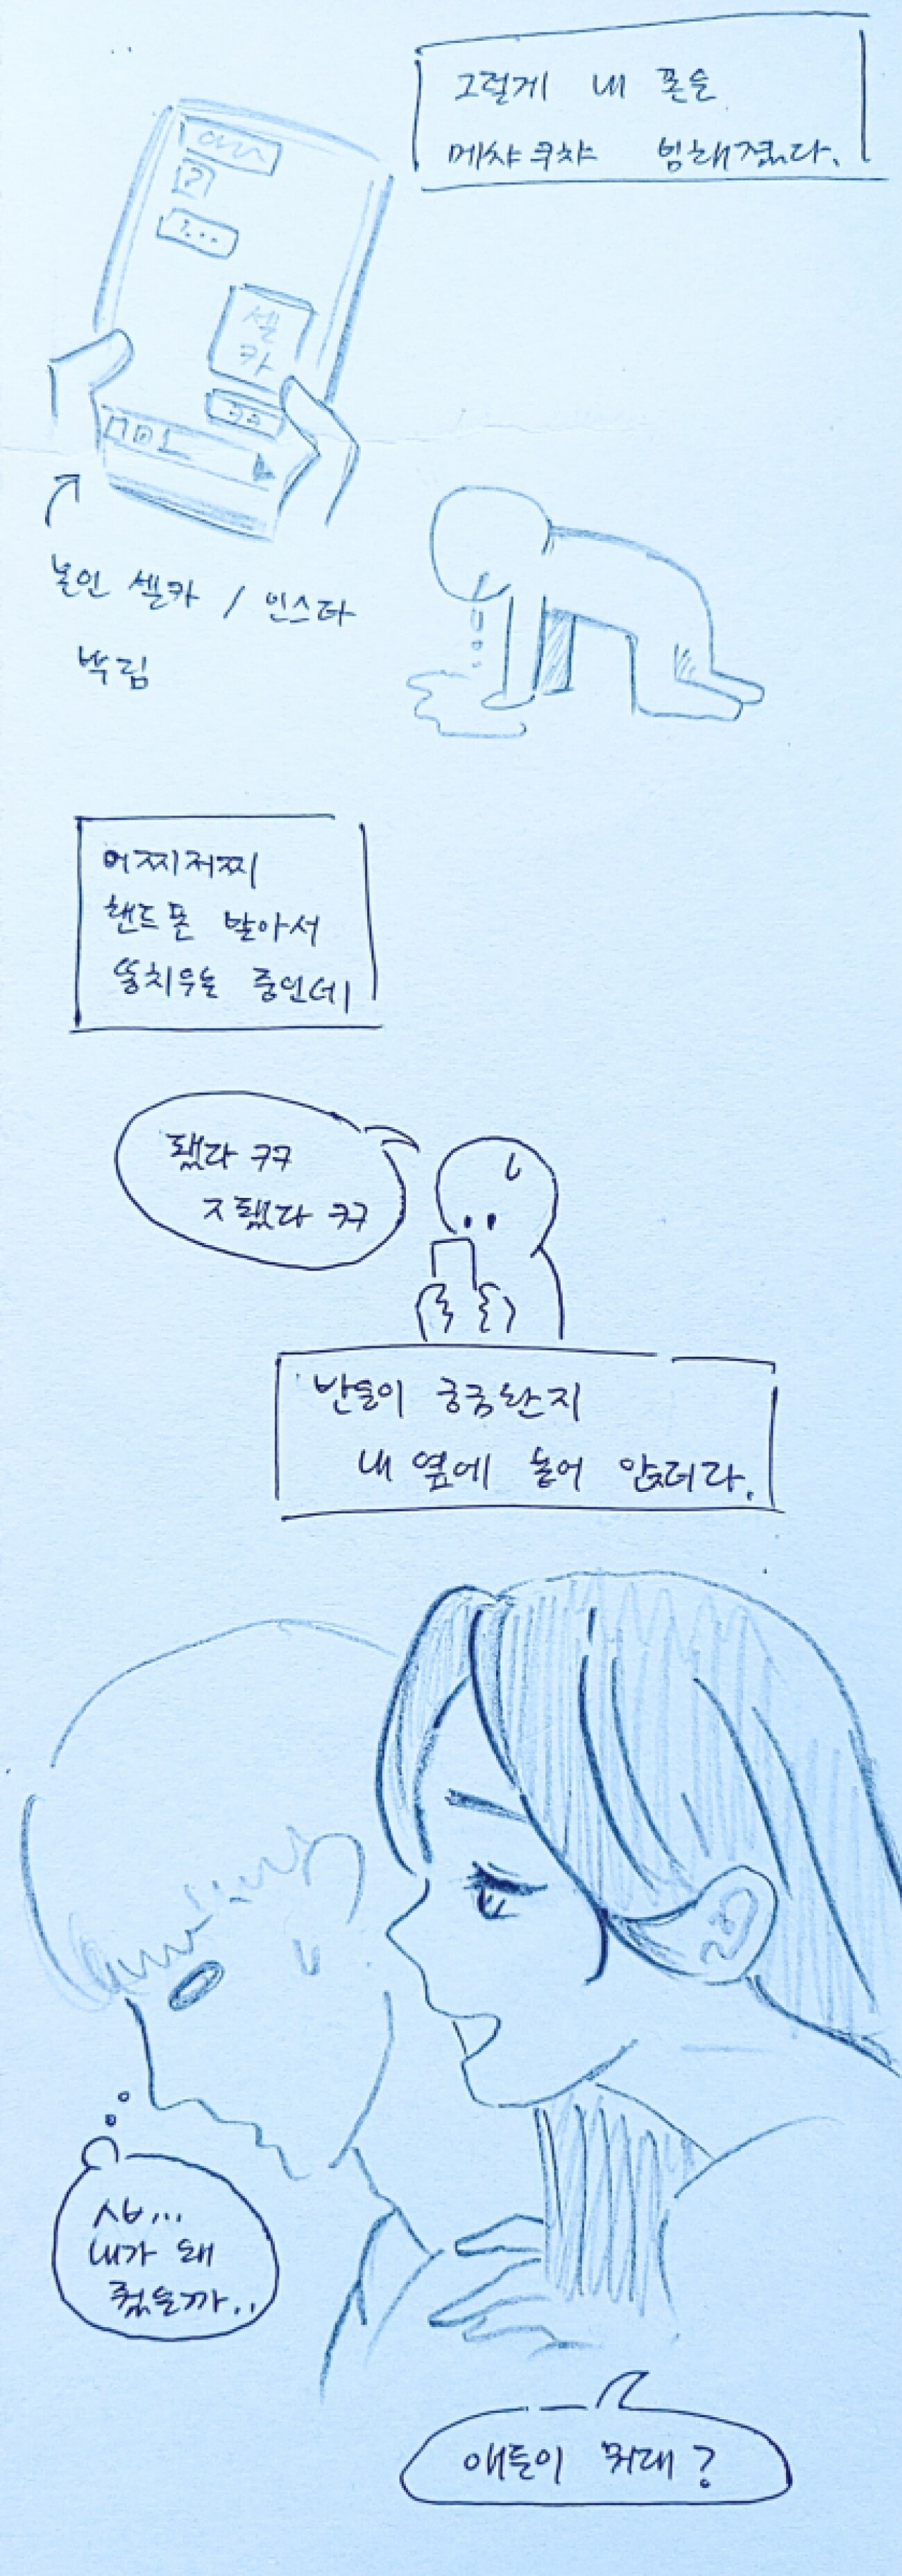 그렇게 내 폰은
메챠쿠챠 범해졌다.
?
?...
셀
카
ㅋㅋ
본인 셀카 / 인스타
박림
어찌저찌
핸드폰 받아서
똥치우는 중인데
됐다 ㅋㅋ
ㅈ됐다 ㅋㅋ
반들이 궁금한지
내 옆에 놀어 앉더라.
ㅅㅂ...
내가 왜
줬을까..
애들이 뭐래?